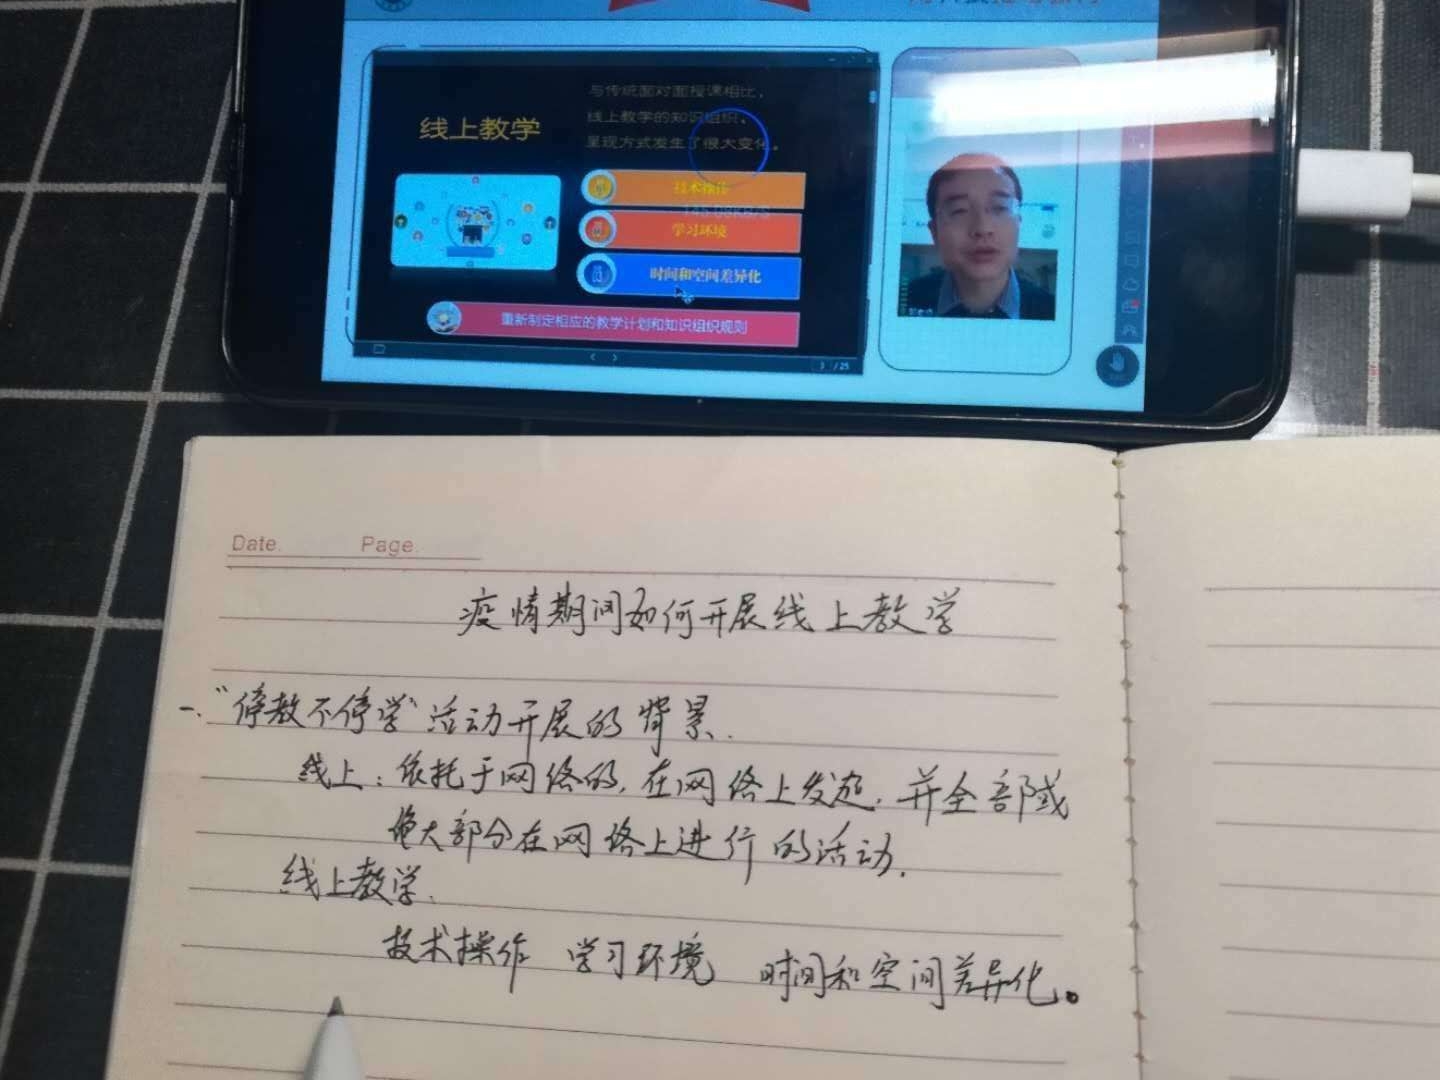 线上教学
与传统面对面授课相比，
线上教学的知识组织、
呈现方式发生了很大变化。
技术操作
学习环境
时间和空间差异化
重新制定相应的教学计划和知识组织规则
3 / 25
Date. Page.
疫情期间如何开展线上教学
一."停教不停学"活动开展的背景.
线上：依托于网络的,在网络上发起,并全部或
绝大部分在网络上进行的活动.
线上教学.
技术操作 学习环境 时间和空间差异化。